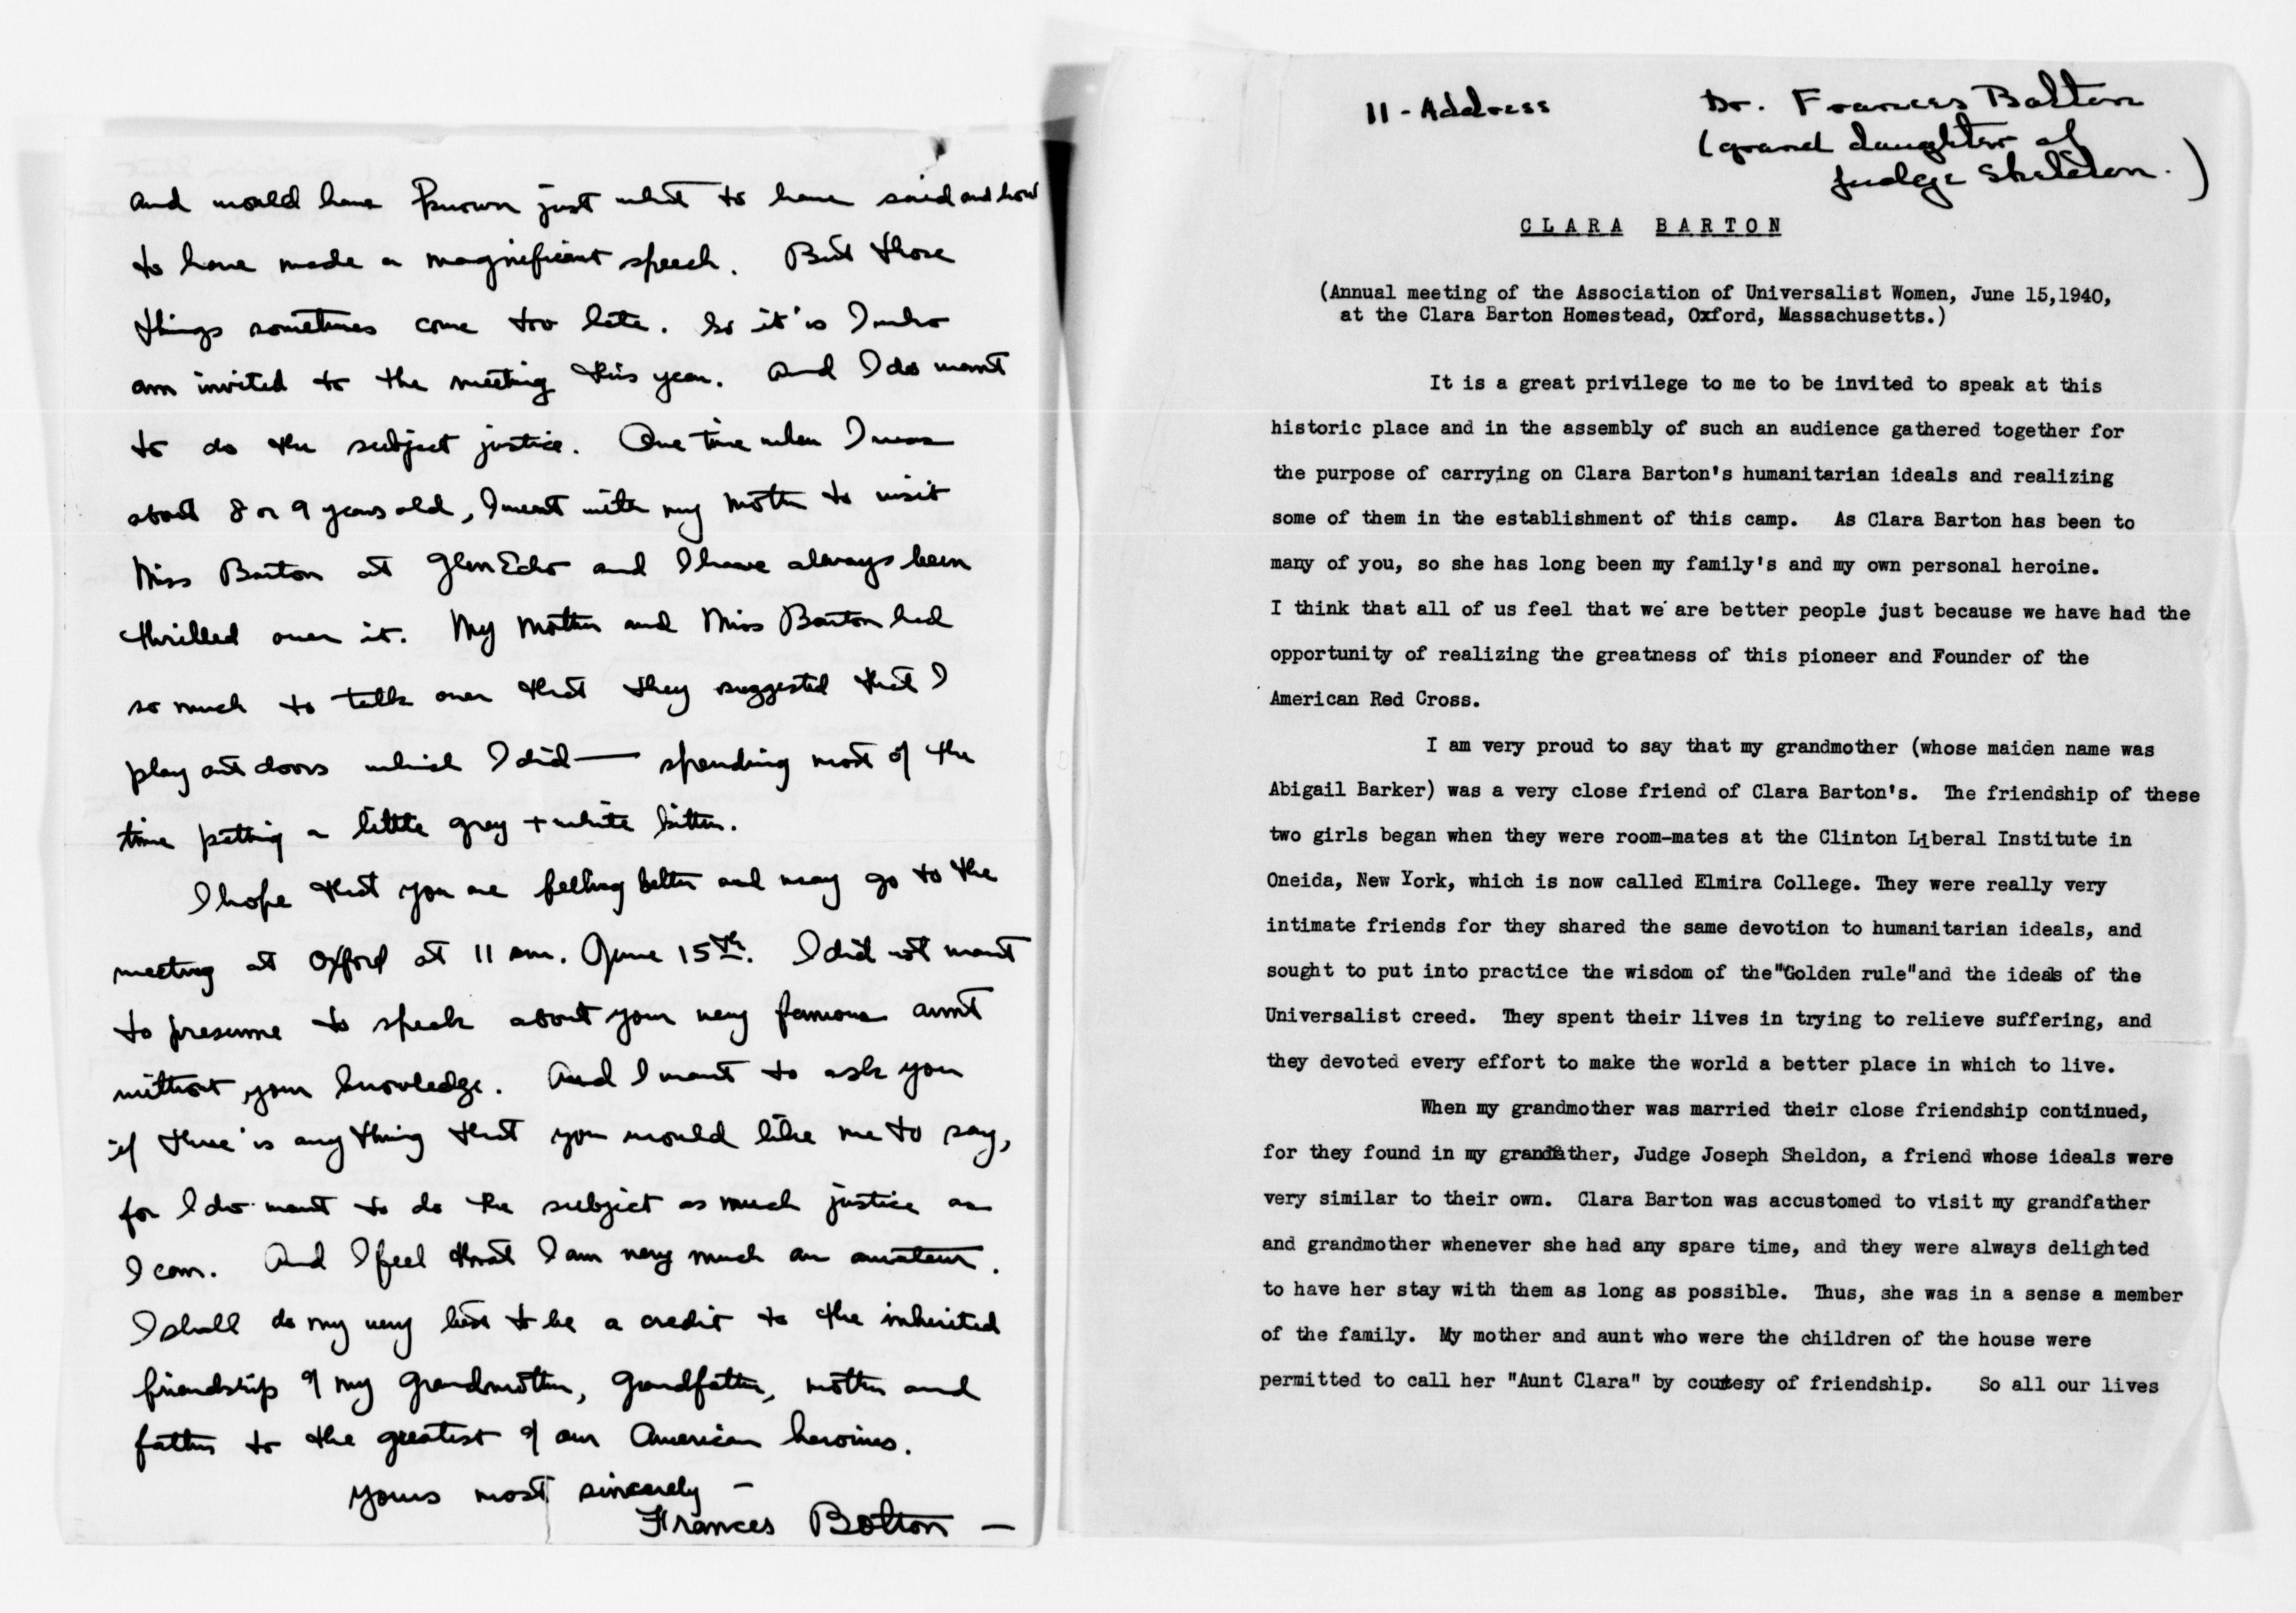 and would have known just what to have said and how
to have made a magnificent speech. But those
things sometimes come too late. So it is I who
am invited to the meeting this year. And I do want
to do the subject justice. One time when I was
about 8 or 9 years old, I went with my mother to visit
Miss Barton at Glen Echo and I have always been
thrilled over it. My mother and Miss Barton had
so much to talk over that they suggested that I
play out doors which I did — spending most of the
time petting a little grey + white kitten.
I hope that you are feeling better and may go to the
meeting at Oxford at 11 am. June 15th. I did not want
to presume to speak about your very famous aunt
without your knowledge. And I want to ask you
if there is any thing that you would like me to say,
for I do want to do the subject as much justice as
I can. And I feel that I am very much an amateur.
I shall do my very best to be a credit to the inherited
friendship of my grandmother, grandfather, mother and
father to the greatest of our American heroines.
Yours most sincerely —
Frances Bolton —
11 - Address
Dr. Frances Bolton
(grand daughter of
Judge Sheldon.)
CLARA BARTON
(Annual meeting of the Association of Universalist Women, June 15,1940,
at the Clara Barton Homestead, Oxford, Massachusetts.)
It is a great privilege to me to be invited to speak at this
historic place and in the assembly of such an audience gathered together for
the purpose of carrying on Clara Barton's humanitarian ideals and realizing
some of them in the establishment of this camp. As Clara Barton has been to
many of you, so she has long been my family's and my own personal heroine.
I think that all of us feel that we are better people just because we have had the
opportunity of realizing the greatness of this pioneer and Founder of the
American Red Cross.
I am very proud to say that my grandmother (whose maiden name was
Abigail Barker) was a very close friend of Clara Barton's. The friendship of these
two girls began when they were room-mates at the Clinton Liberal Institute in
Oneida, New York, which is now called Elmira College. They were really very
intimate friends for they shared the same devotion to humanitarian ideals, and
sought to put into practice the wisdom of the"Golden rule"and the ideals of the
Universalist creed. They spent their lives in trying to relieve suffering, and
they devoted every effort to make the world a better place in which to live.
When my grandmother was married their close friendship continued,
for they found in my grandfather, Judge Joseph Sheldon, a friend whose ideals were
very similar to their own. Clara Barton was accustomed to visit my grandfather
and grandmother whenever she had any spare time, and they were always delighted
to have her stay with them as long as possible. Thus, she was in a sense a member
of the family. My mother and aunt who were the children of the house were
permitted to call her "Aunt Clara" by courtesy of friendship. So all our lives